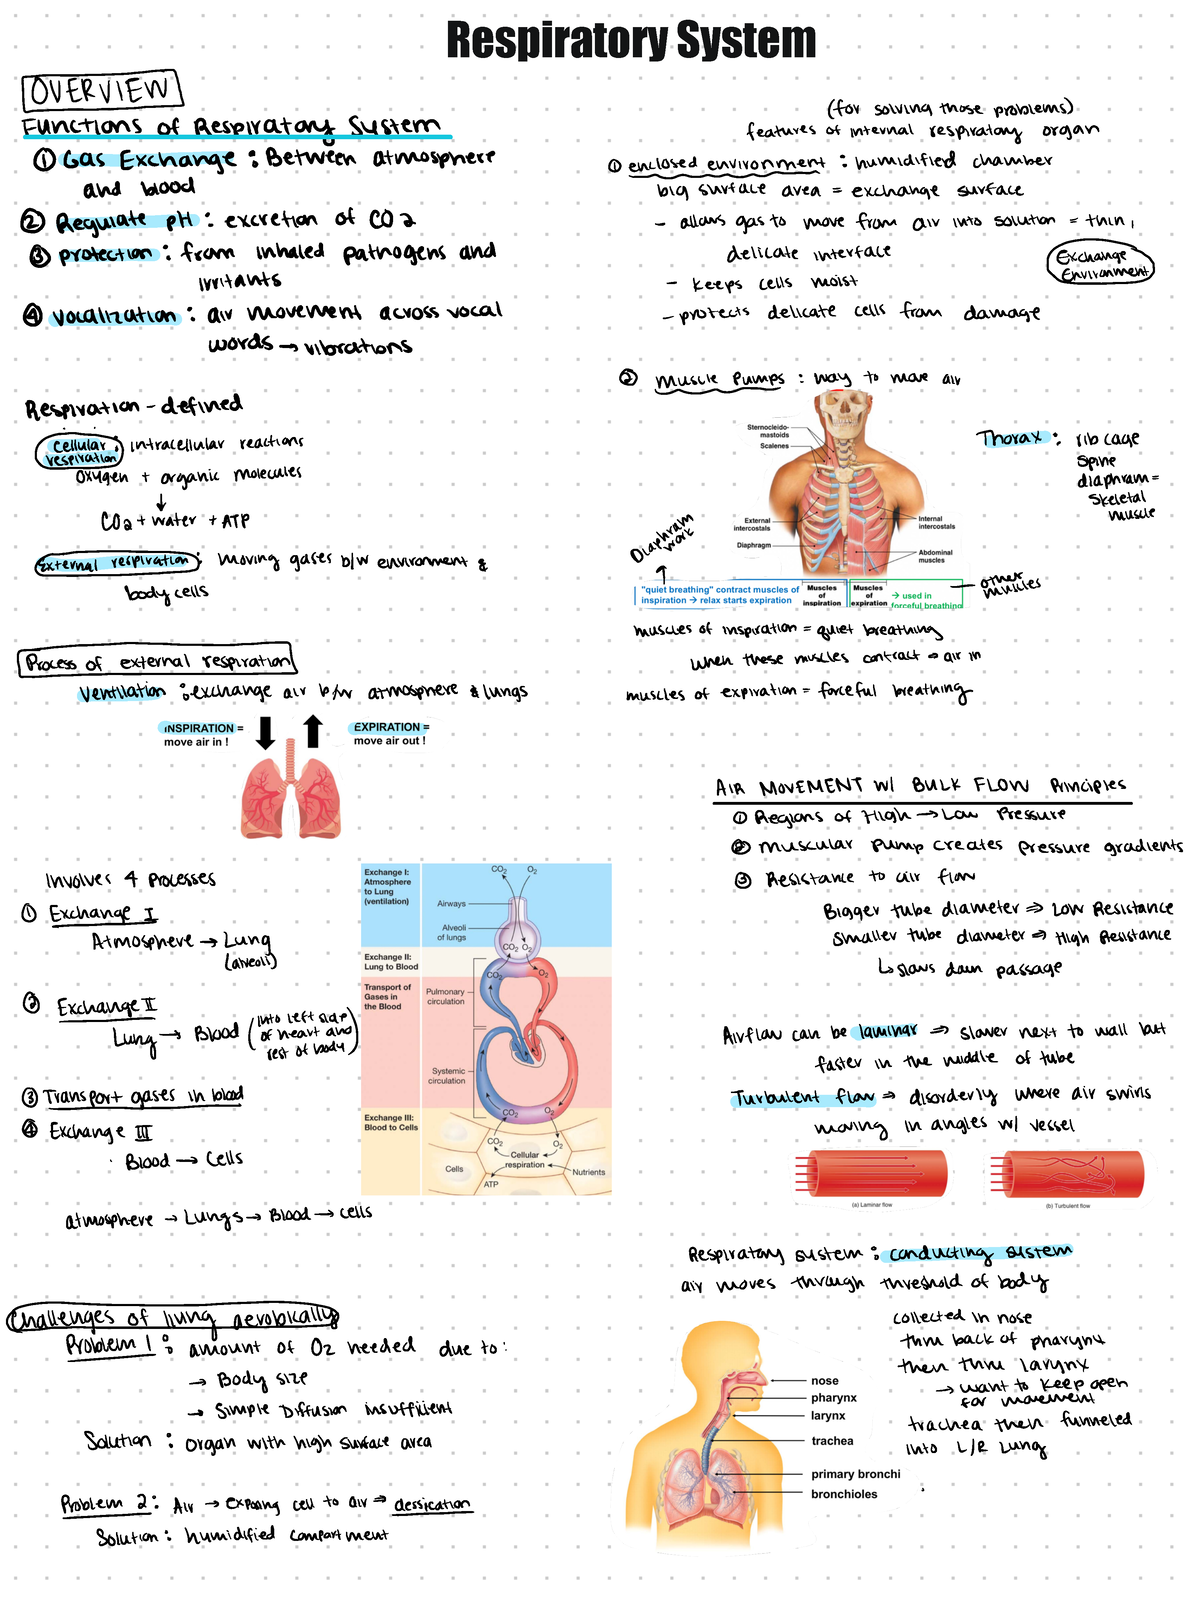 Respiratory System
OVERVIEW
Functions of Respiratory System
① Gas Exchange : Between atmosphere
and blood
② Regulate pH : excretion of CO2
③ protection : from inhaled pathogens and
irritants
④ Vocalization : air movement across vocal
words → vibrations
Respiration - defined
Cellular respiration : intracellular reactions
Oxygen + organic molecules
↓
CO2 + water + ATP
External respiration : moving gases b/w environment &
body cells
Process of external respiration
Ventilation : exchange air b/w atmosphere & lungs
INSPIRATION =
move air in !
EXPIRATION =
move air out !
Involves 4 Processes
① Exchange I
Atmosphere → Lung
(alveoli)
② Exchange II
Lung → Blood (into left side
of heart and
rest of body)
③ Transport gases in blood
④ Exchange III
Blood → Cells
atmosphere → Lungs → Blood → cells
Exchange I:
Atmosphere
to Lung
(ventilation)
CO2
O2
Airways
Alveoli
of lungs
CO2
O2
Exchange II:
Lung to Blood
CO2
O2
Transport of
Gases in
the Blood
Pulmonary
circulation
Systemic
circulation
Exchange III:
Blood to Cells
CO2
O2
CO2
O2
Cellular
respiration
Cells
Nutrients
ATP
Challenges of living aerobically
Problem 1 : amount of O2 needed due to :
→ Body size
→ Simple Diffusion insufficient
Solution : organ with high surface area
Problem 2 : Air → exposing cell to air ⇒ dessication
Solution : humidified compartment
(for solving those problems)
features of internal respiratory organ
① enclosed environment : humidified chamber
big surface area = exchange surface
- allows gas to move from air into solution = thin,
delicate interface
- keeps cells moist
- protects delicate cells from damage
Exchange
Environment
② Muscle Pumps : way to move air
Sternocleido-
mastoids
Scalenes
External
intercostals
Diaphragm
Internal
intercostals
Abdominal
muscles
Thorax : rib cage
Spine
diaphram =
Skeletal
muscle
Diaphram
work
"quiet breathing" contract muscles of
inspiration → relax starts expiration
Muscles
of
inspiration
Muscles
of
expiration
→ used in
forceful breathing
other
muscles
muscles of inspiration = quiet breathing
when these muscles contract ⇒ air in
muscles of expiration = forceful breathing
AIR MOVEMENT W/ BULK FLOW Principles
① Regions of High → Low Pressure
② muscular pump creates pressure gradients
③ Resistance to air flow
Bigger tube diameter ⇒ Low Resistance
Smaller tube diameter ⇒ High Resistance
↳ slows down passage
Airflow can be laminar ⇒ slower next to wall but
faster in the middle of tube
Turbulent flow ⇒ disorderly where air swirls
moving in angles w/ vessel
(a) Laminar flow
(b) Turbulent flow
Respiratory system : conducting system
air moves through threshold of body
collected in nose
thru back of pharynx
then thru larynx
→ want to keep open
for movement
trachea then funneled
into L/R Lung
nose
pharynx
larynx
trachea
primary bronchi
bronchioles